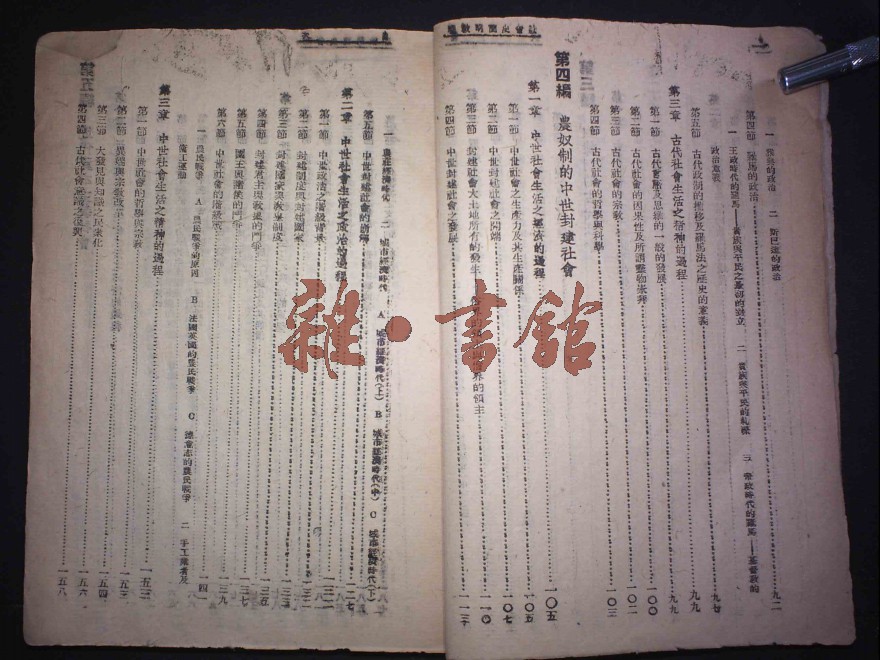 社會史簡明教程
一 雅典的政治 二 斯巴達的政治
第四節 羅馬的政治 九二
一 王政時代的羅馬——貴族與平民之最初的對立 二 貴族與平民的軋轢 三 帝政時代的羅馬——基督教的
政治意義 九七
第五節 古代政制的推移及羅馬法之歷史的意義 九九
第三章 古代社會生活之精神的過程 九九
第一節 古代言語及思維的一般的發展 一〇〇
第二節 古代社會的因果性及所謂靈物崇拜 一〇二
第三節 古代社會的宗教 一〇三
第四節 古代社會的哲學與科學
第四編 農奴制的中世封建社會 一〇五
第一章 中世社會生活之經濟的過程 一〇五
第一節 中世社會之生產力及其生產關係 一〇七
第二節 封建社會之開端 一一〇
第三節 封建社會大土地所有的發生 界的領主
第四節 中世封建社會之發展 一一三
一 農莊經濟時代 二 城市經濟時代 A 城市經濟時代(上) B 城市經濟時代(中) C 城市經濟時代(下)
第五節 中世封建社會的崩潰
第二章 中世社會生活之政治的過程 一二七
第一節 中世政治之階級背景 一三一
第二節 封建制度與封建國家
第三節 封建國家與教皇制度
第四節 封建君主與教皇的鬥爭 一三五
第五節 國王與諸侯的鬥爭 一三七
第六節 中世社會的階級戰 一三九
一 農民戰爭 A 農民戰爭的原因 B 法國英國的農民戰爭 C 德意志的農民戰爭 二 手工業者及
職工運動
第三章 中世社會生活之精神的過程 一五二
第一節 中世社會的哲學與宗教 一五三
第二節 異端與宗教改革 一五四
第三節 大發見與知識之民衆化 一五六
第四節 古代社會思潮之復興 一五八
雜·書館